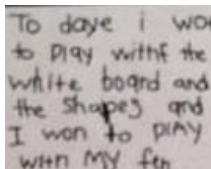 To daye i wo
to play withf the
white board and
the shapes and
I won to plAy
with My fen